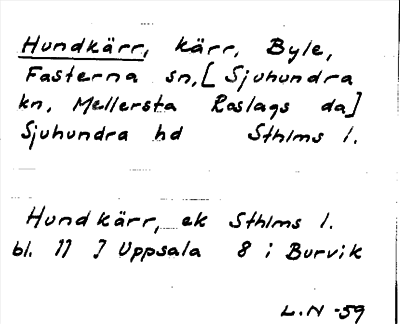 Hundkärr, kärr, Byle,
Fasterna sn, [Sjuhundra
kn, Mellersta Roslags da]
Sjuhundra hd Sthlms l.
Hundkärr, ek Sthlms l.
bl. 11 J Uppsala 8 i Burvik
L.N -59